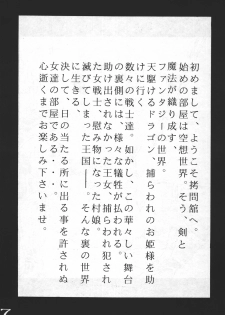 初めまして、ようこそ拷問館へ。
始めの部屋は空想世界。そう、剣と
魔法が織り成す、
ファンタジーの世界。
天駆けるドラゴン、捕らわれのお姫様を助
けに行く、
数々の戦士達。しかし、この華々しい舞台
の裏側には、様々な犠牲が払われる。
助け出されなかった王女、捕らわれ犯され
た女戦士、慰み物になった村娘。
滅びてしまった王国――。そんな裏の世界
に生きる、
決して、日の当たる所に出る事を許されぬ
女達の部屋である・・・・。
心逝くまでお楽しみ下さいませ。
7